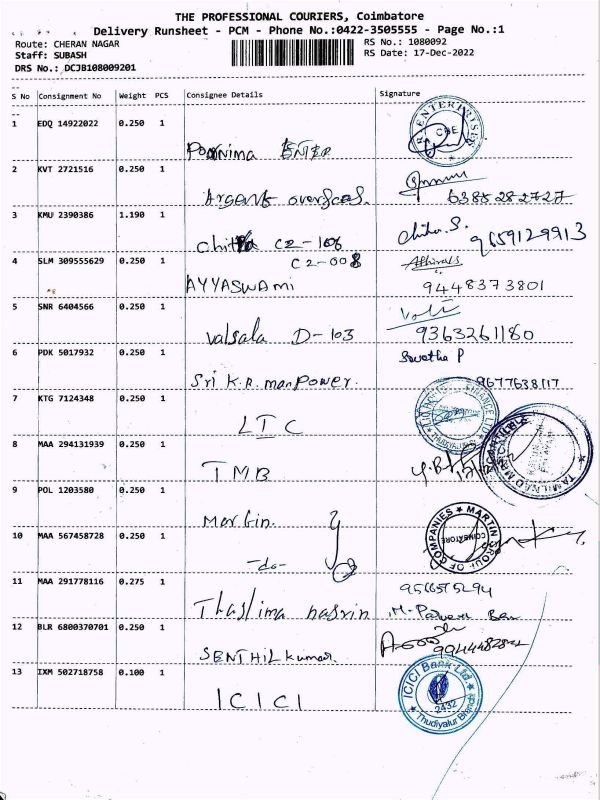 THE PROFESSIONAL COURIERS, Coimbatore
Delivery Runsheet - PCM - Phone No.:0422-3505555 - Page No.:1
Route: CHERAN NAGAR
RS No.: 1080092
Staff: SUBASH
RS Date: 17-Dec-2022
DRS No.: DCJB108009201
S No Consignment No Weight PCS Consignee Details Signature
1 EDQ 14922022 0.250 1 ENTERPRISES CBE
2 KVT 2721516 0.250 1 Argent overseas. 6385282727
3 KMU 2390386 1.190 1 Chitra C2-106 Chitra.S. 9659129913
C2-008
4 SLM 309555629 0.250 1 AYYASWAMI 9448373801
5 SNR 6404566 0.250 1 Valsala D-103 9363261180
6 PDK 5017932 0.250 1 Sri K.R. manpower. Swetha P 9677638117
7 KTG 7124348 0.250 1 LIC
8 MAA 294131939 0.250 1 TMB
TAMILNAD MERCANTILE
9 POL 1203580 0.250 1 Martin.
MARTIN GROUP OF COMPANIES COIMBATORE
10 MAA 567458728 0.250 1 -do-
11 MAA 291778116 0.275 1 Thaslima nasrin
12 BLR 6800370701 0.250 1 SENTHIL kumar.
13 IXM 502718758 0.100 1 ICICI
ICICI Bank Ltd 2432 Thudiyalur Branch